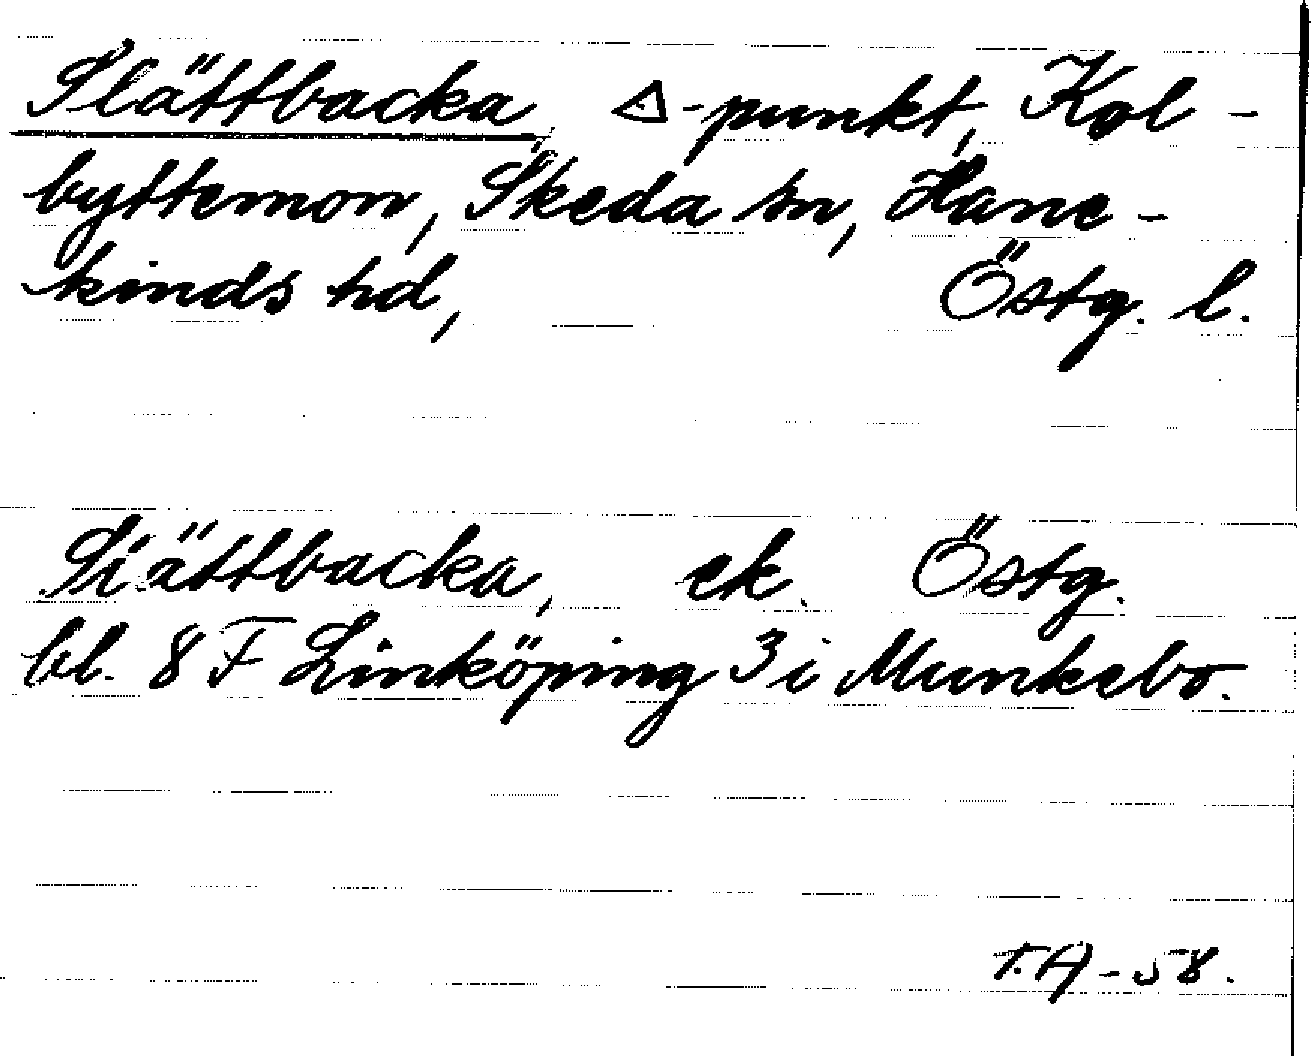 Slättbacka, △-punkt, Kol-
byttemon, Skeda sn, Hane-
kinds hd, Östg. l.
Slättbacka, ek. Östg.
bl. 8 F Linköping 3 i Munkebo.
T.A-58.